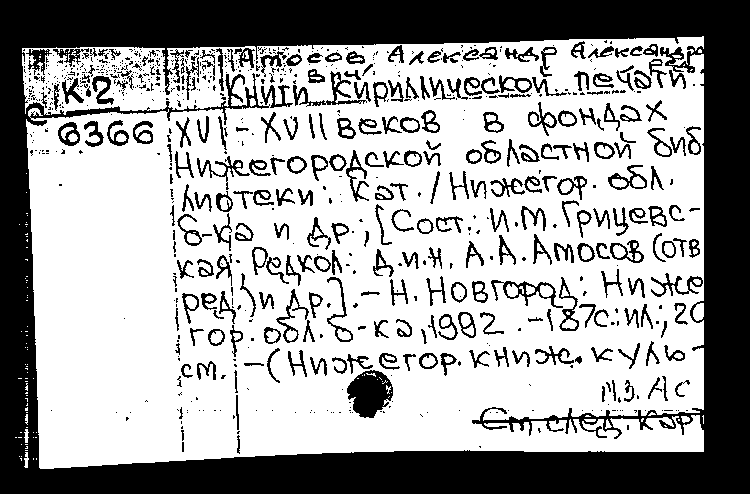 Амосов, Александр Александро
К.2
Книги кириллической печати
6366
XVI - XVII веков в фондах
Нижегородской областной биб-
лиотеки: Кат. / Нижегор. обл.
б-ка и др.; [Сост.: И.М. Грицевс-
кая; Редкол.: д.и.н. А.А. Амосов (отв
ред.) и др.]. - Н. Новгород: Ниже
гор. обл. б-ка, 1992. - 187с.: ил.; 20
см. - (Нижегор. книж. куль-
М.З. АС
См. след. карт